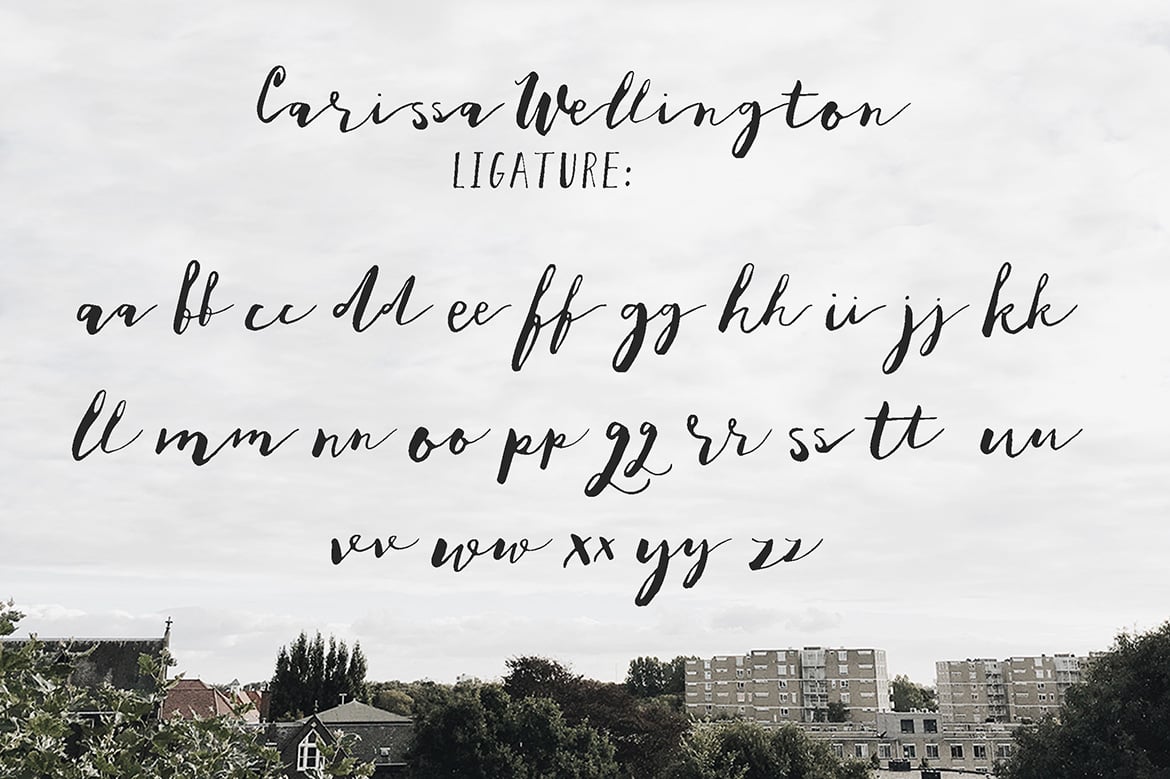 Carissa Wellington
LIGATURE:
aa bb cc dd ee ff gg hh ii jj kk
ll mm nn oo pp qq rr ss tt uu
vv ww xx yy zz